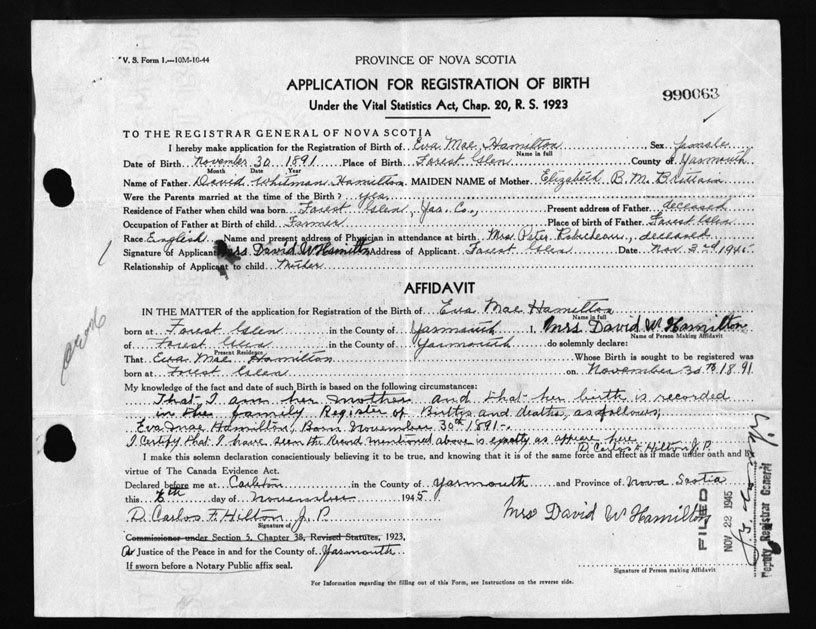 V. S. Form 1.—10M-10-44
PROVINCE OF NOVA SCOTIA
APPLICATION FOR REGISTRATION OF BIRTH
Under the Vital Statistics Act, Chap. 20, R. S. 1923
990063
TO THE REGISTRAR GENERAL OF NOVA SCOTIA
I hereby make application for the Registration of Birth of Eva Mae Hamilton Sex female
Name in full
Date of Birth November 30 1891 Place of Birth Forest Glen County of Yarmouth
Month Date Year
Name of Father David Whitman Hamilton MAIDEN NAME of Mother Elizabeth B. M. Brittain
Were the Parents married at the time of the Birth? yes
Residence of Father when child was born Forest Glen, Yar. Co., Present address of Father deceased
Occupation of Father at Birth of child Farmer Place of birth of Father Forest Glen
Race English Name and present address of Physician in attendance at birth Mrs Peter Robicheau, deceased
Signature of Applicant Mrs David W Hamilton Address of Applicant Forest Glen Date Nov 3rd 1945
Relationship of Applicant to child Mother
AFFIDAVIT
IN THE MATTER of the application for Registration of the Birth of Eva Mae Hamilton
Name in full
born at Forest Glen in the County of Yarmouth I, Mrs David W Hamilton
Name of Person Making Affidavit
of Forest Glen in the County of Yarmouth do solemnly declare:
Present Residence
That Eva Mae Hamilton Whose Birth is sought to be registered was
born at Forest Glen on November 30th 1891
My knowledge of the fact and date of such Birth is based on the following circumstances:
That I am her mother and that her birth is recorded
in the family Register of Births and deaths, as follows;
Eva Mae Hamilton, Born November 30th 1891-.
I Certify that I have seen the Record mentioned above is exactly as appears here
D. Carlos F. Hilton J. P.
I make this solemn declaration conscientiously believing it to be true, and knowing that it is of the same force and effect as if made under oath and by
virtue of The Canada Evidence Act.
Declared before me at Carleton in the County of Yarmouth and Province of Nova Scotia
this 6th day of November 1945
D. Carlos F. Hilton J. P. Mrs David W Hamilton
Signature of
Commissioner under Section 5, Chapter 38, Revised Statutes, 1923,
Or Justice of the Peace in and for the County of Yarmouth
If sworn before a Notary Public affix seal.
Signature of Person making Affidavit
For Information regarding the filling out of this Form, see Instructions on the reverse side.
FILED
NOV 22 1945
Deputy Registrar General